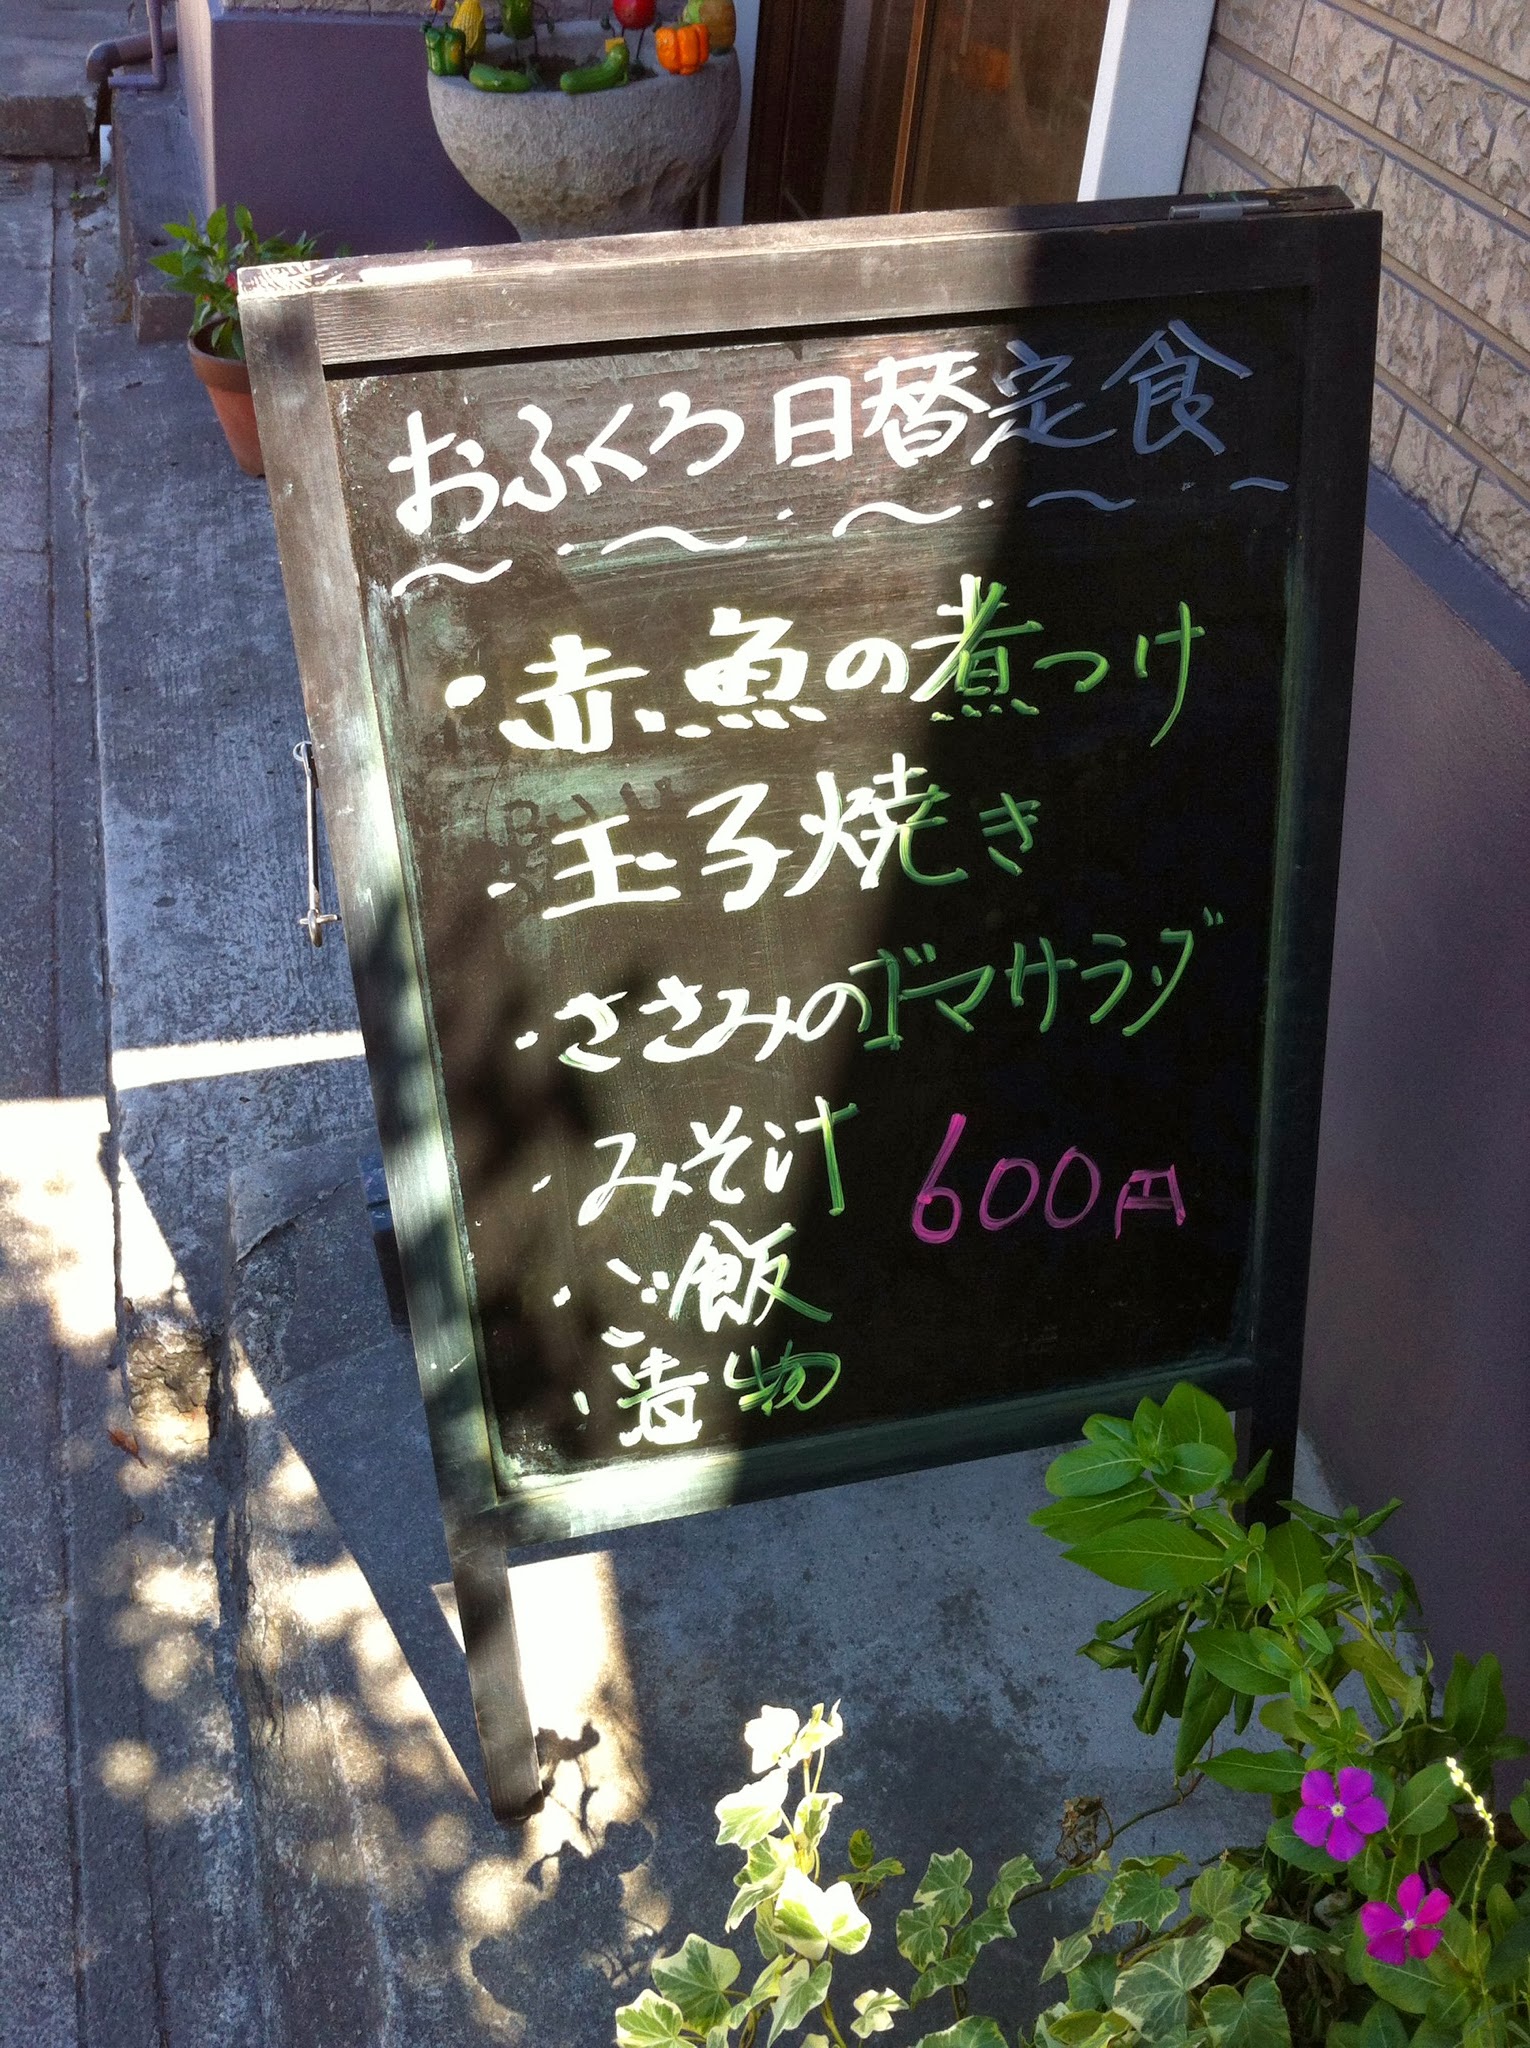 おふくろ日替定食
〜・〜・〜・〜・〜
・赤魚の煮つけ
・玉子焼き
・ささみのゴマサラダ
・みそ汁 600円
・ご飯
・漬物